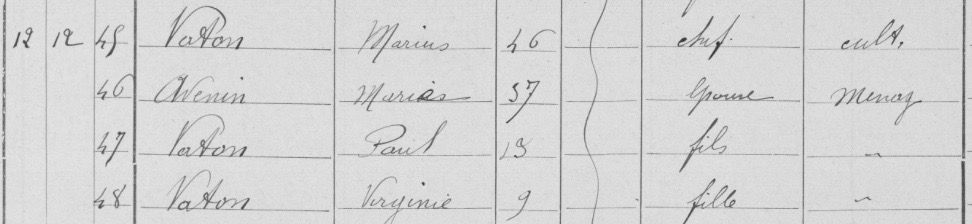 12 12 45 Vaton Marius 46 chef. cult.
46 Avenin Maria 37 épouse Menag
47 Vaton Paul 13 fils "
48 Vaton Virginie 9 fille "